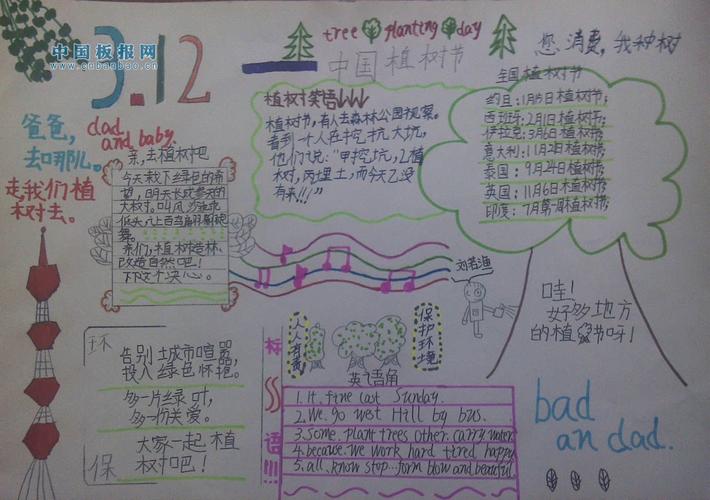 中国板报网
www.cnbanbao.cn
3.12
tree planting day
中国植树节
您消费,我种树
爸爸,
去哪儿。
走,我们植
树去。
dad
and baby
亲,去植树吧
今天栽下绿色的希
望,明天长成参天的
大树。叫风沙
低头,
舞。
亲们,植树造林,
改造自然吧!
下下这个决心。
植树笑语
植树节,有人去森林公园视察。
看到一个人在挖坑大坑,
他们说:"甲挖坑,乙植
树,丙埋土,而今天乙没
有来!!!"
全国植树节
约旦:1月15日植树节;
西班牙:2月1日植树节;
伊拉克:3月6日植树节;
意大利:11月21日植树节;
泰国:9月24日植树节;
英国:11月6日植树节;
印度:7月第1周植树节;
刘若渔
哇!
好多地方
的植树节呀!
环
保
告别土城市喧嚣,
投入绿色怀抱。
多一片绿叶,
多一份关爱。
大家一起植
树吧!
标
语!!!
人人有责
保护环境
英语角
1. It. fine last Sunday.
2. We. go west Hill by bus.
3. Some. plant trees other. carry water
4. because. we work hard tired. happy
5. all. know stop...form blow and beautiful.
bad
an dad.